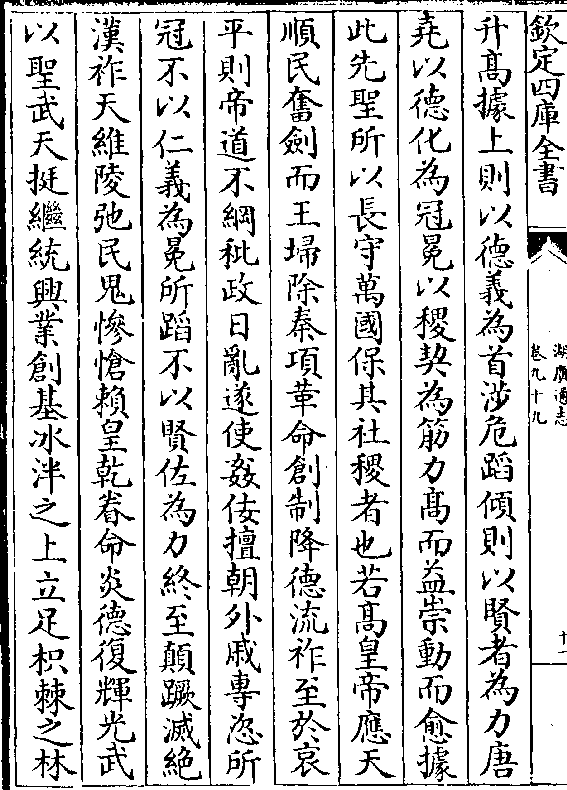 欽定四庫全書
湖廣通志
卷九十九
十一
升高據上則以德義為首涉危蹈傾則以賢者為力唐
堯以德化為冠冕以稷契為筋力高而益崇動而愈據
此先聖所以長守萬國保其社稷者也若高皇帝應天
順民奮劍而王埽除秦項革命創制降德流祚至於哀
平則帝道不綱秕政日亂遂使姦佞擅朝外戚專恣所
冠不以仁義為冕所蹈不以賢佐為力終至顛蹶滅絕
漢祚天維陵弛民鬼慘愴賴皇乾眷命炎德復輝光武
以聖武天挺繼統興業創基冰泮之上立足枳棘之林